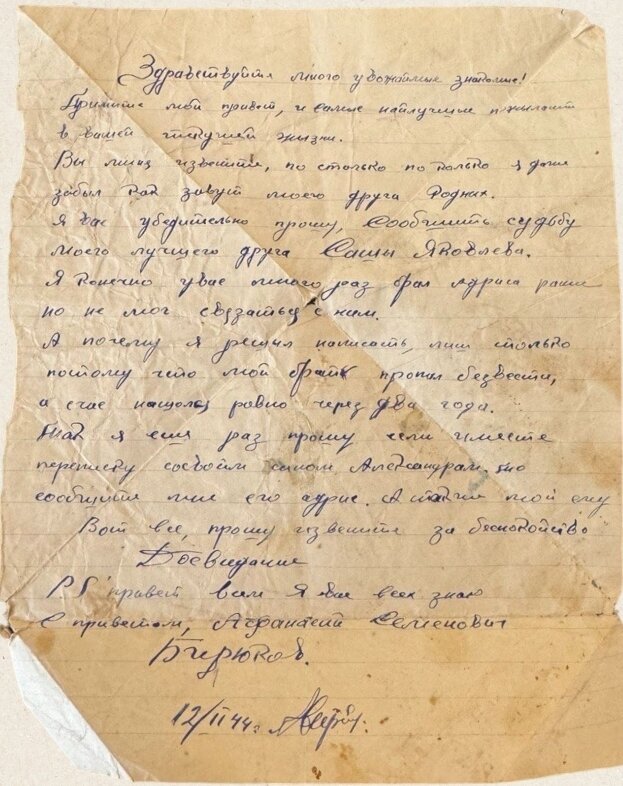 Здравствуйти много уважаимые знакомые!
Примите мой привет, и самые наилучшие пжылания
в вашей текущей жизни.
Вы миня извените, по столько по колько я даже
забыл как завут моего друга Родных.
Я вас убедительно прошу, сообщить судьбу
моего лучшего друга Сашы Яковлева.
Я конечно увас много раз брал адриса раньше
но не мог связаться с ним.
А почему я решил написать, лиш столько
потому что мой братк пропал безвести,
а счас нашолся ровно через два года.
Так я ещё раз прошу если имеете
переписку сосвоим сыном, Александрам. то
сообщите мне его адрис. А также мой ему
Вот все, прошу извените за беспокойство
Досвидание
P S привет вам я вас всех знаю
С приветом, Афанасий Семенович
Бирюков.
12/II 44г.